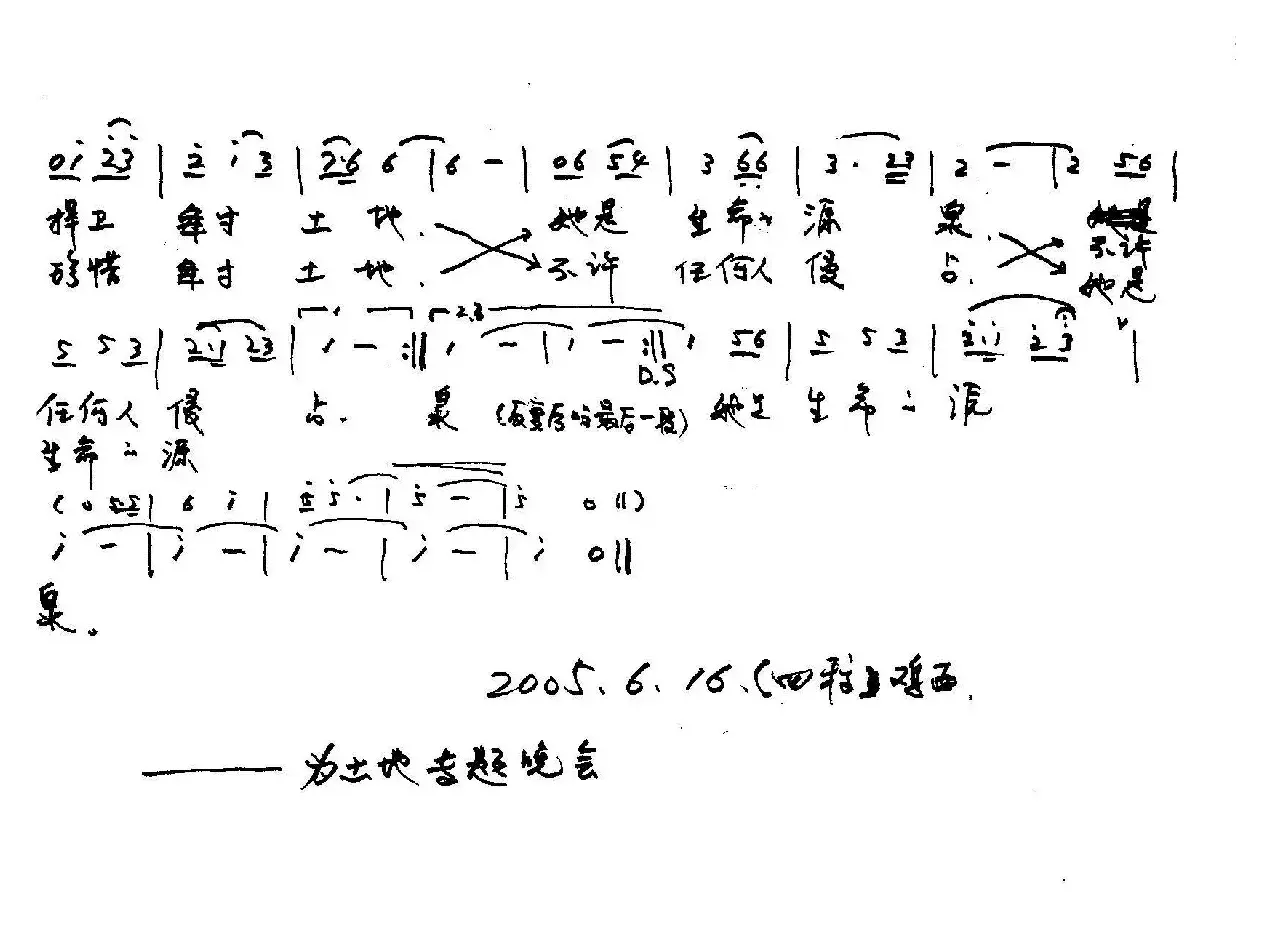 0 i 2 3 | 2 i 3 | 2·6 6 | 6 — | 06 54 | 3 66 | 3· 23 | 2 — | 2 56 |
捍卫 每寸 土 地. 她是 生命的 源 泉.
不许
珍惜 每寸 土 地. 不许 任何人 侵 占. 她是
5 5 3 | 2·1 23 | 1 — :|| 1 — | 1 — :|| 1 56 | 5 5 3 | 3·i i 3 |
D.S
任何人 侵 占. 泉 (反复后的最后一段) 她是 生命的 源
生命的 源
( 0 55 | 6 i | 5 5· | 5 — | 5 0 || )
i — | i — | i — | i — | i 0 ||
泉。
2005. 6. 16. 鸡西.
—— 为土地专题晚会